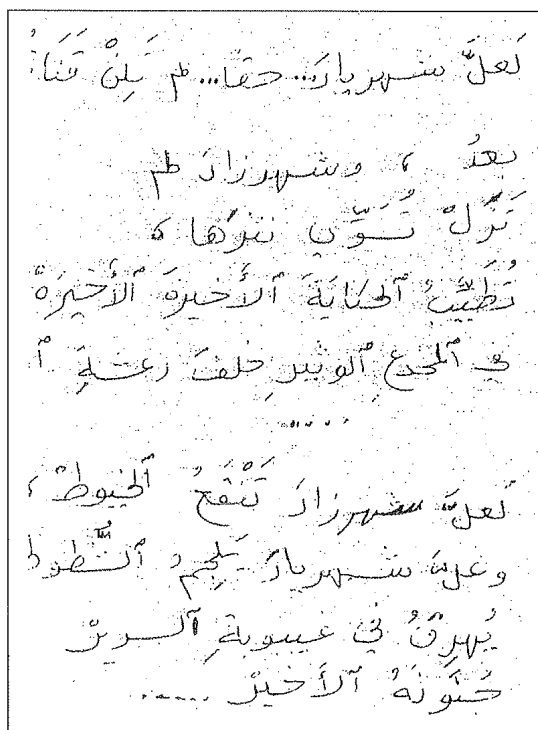 لَعلَّ شهريارَ... حقا... لم تَلِنْ قَنَا:
بعدُ ، وشهرزادَ لم
تَزَلْ تُسَوِّي نثرها ،
تُطَيِّبُ ٱلحكايَةَ ٱلأَخيرَةَ ٱلأَخيرَةْ
في ٱلمخدعِ ٱلوثيرِ خلفَ رعشةِ ٱ
......
لعلَّ شهرزادَ تَنْقَعُ ٱلخيوطْ ،
وعلَّ شهريارَ يَلجمُ ٱلشُّطوط
يُهرِقُ في غيبوبةِ ٱلسريرْ
جُنَونَهُ ٱلأَخيرْ .....